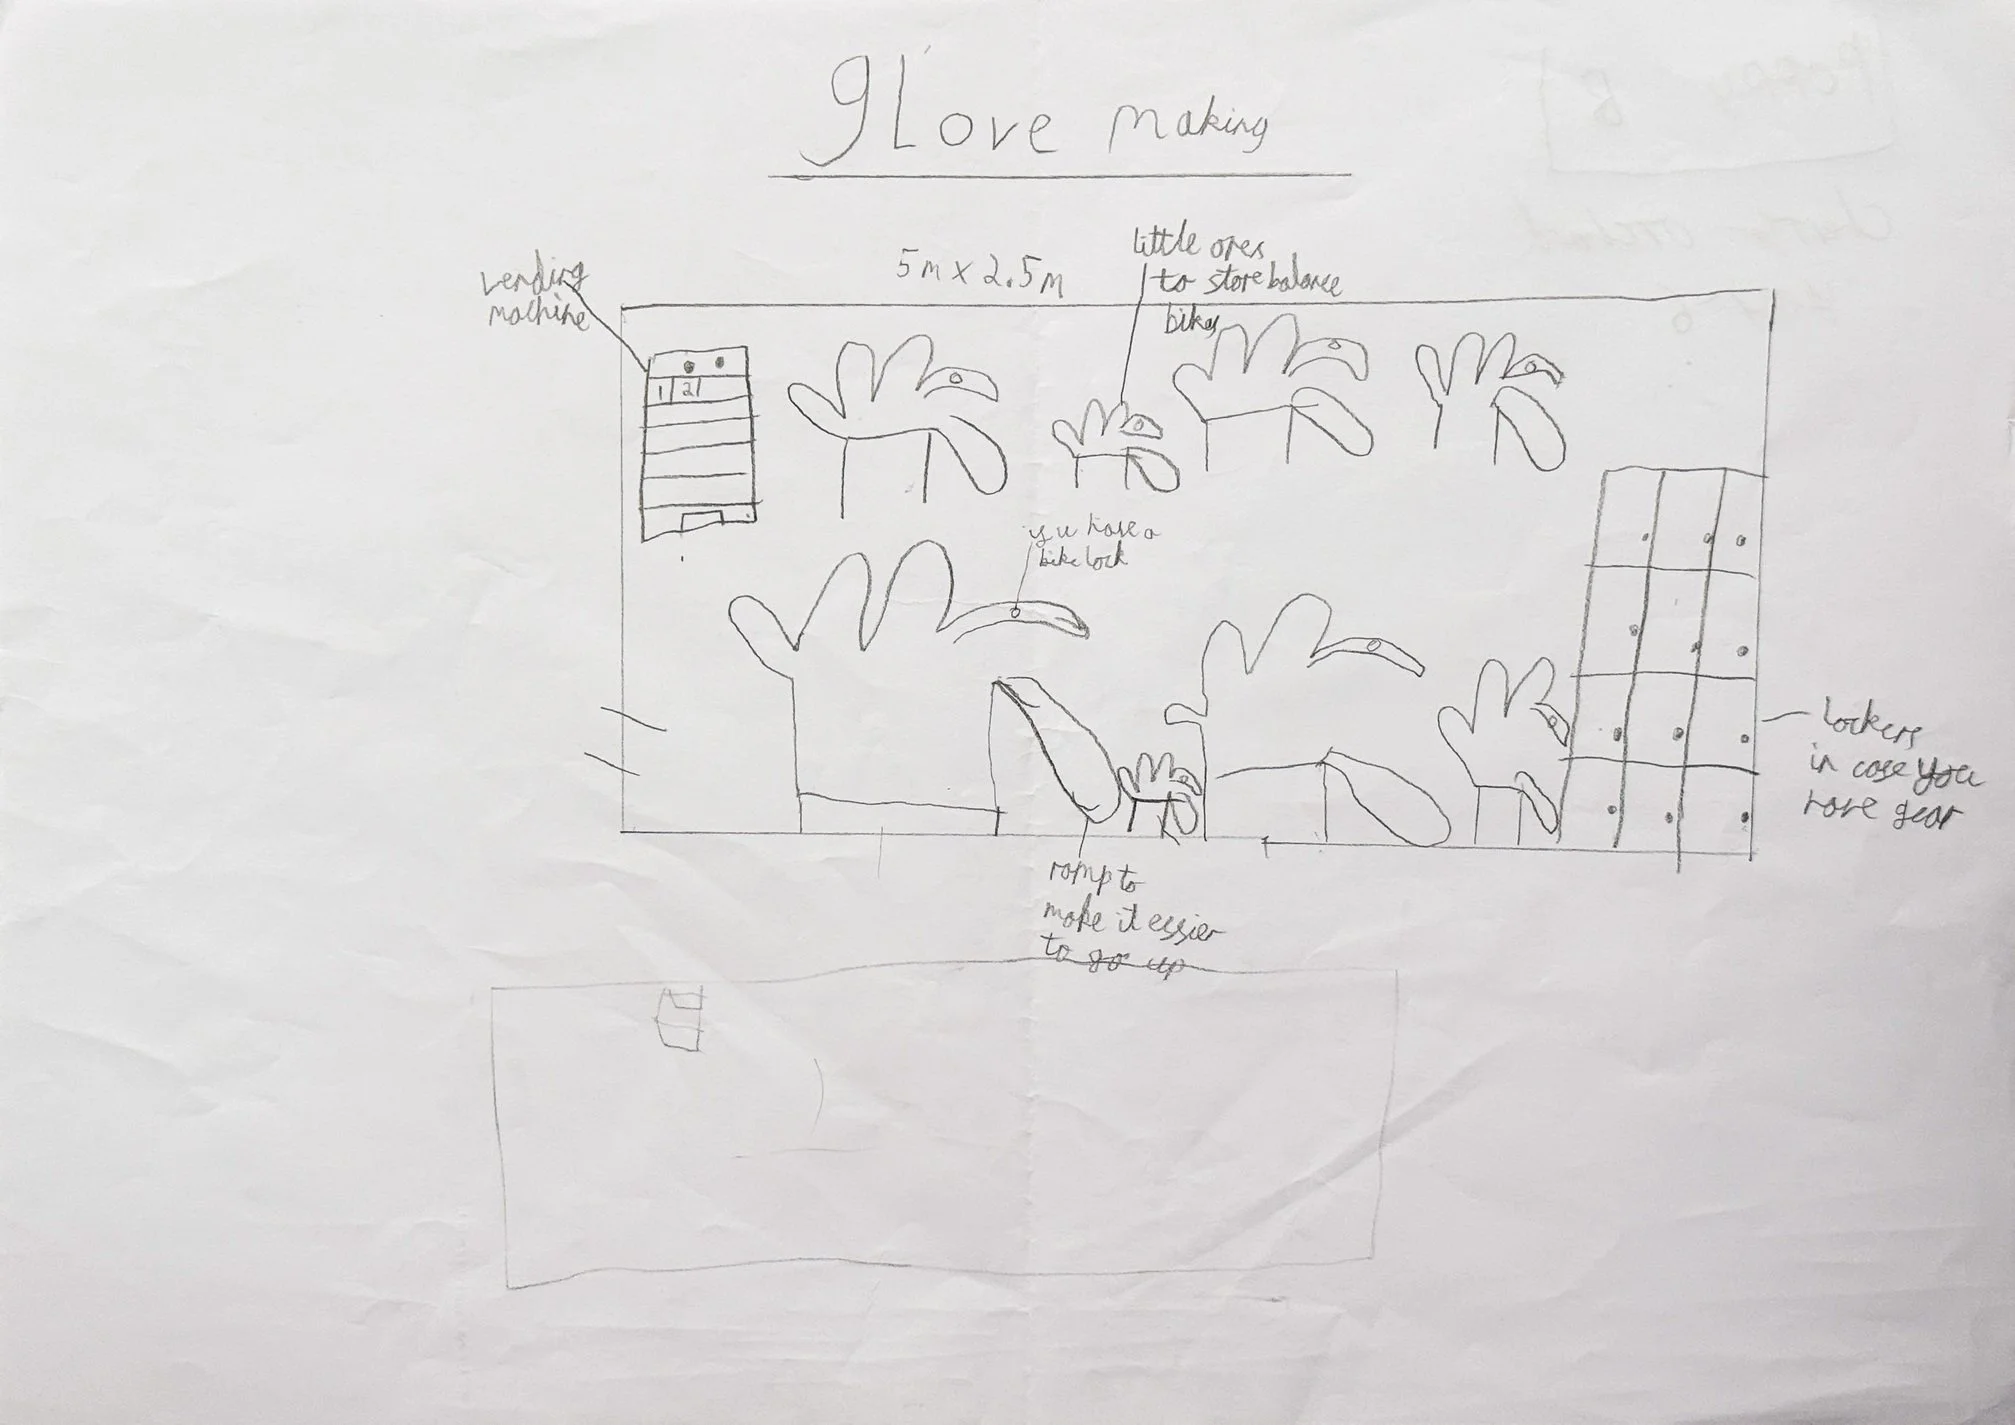 gLove making
5m x 2.5m
vending
machine
little ones
to store balance
bikes
1 2
have a
bike lock
lockers
in case you
have gear
ramp to
make it essier
to go up